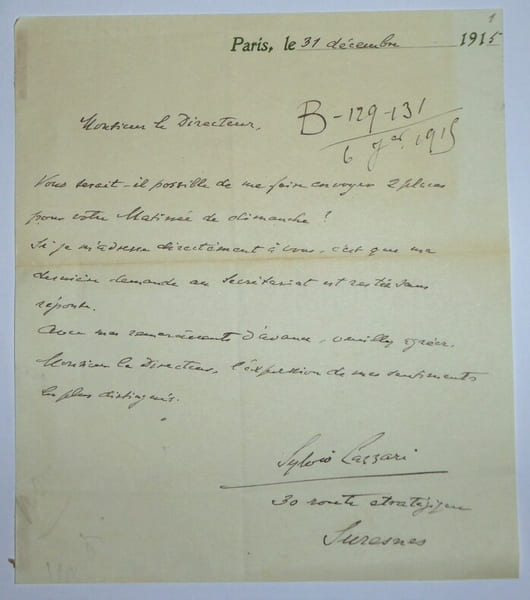 1
Paris, le 31 décembre 1915
B-129-131
6 1915
Monsieur le Directeur,
Vous serait-il possible de me faire envoyer 2 places
pour votre Matinée de dimanche ?
Si je m'adresse directement à vous, c'est que ma
dernière demande au Secrétariat est restée sans
réponse.
Avec mes remerciements d'avance, veuillez agréer,
Monsieur le Directeur, l'expression de mes sentiments
les plus distingués.
Sylvio Lazzari
30 route stratégique
Suresnes